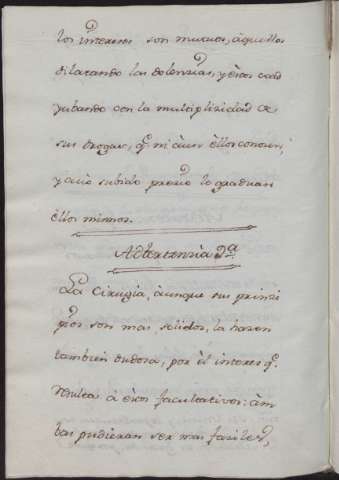 los íntereses son mutuos, áquellos
dilatando las dolenzias, y éstos coad
yubando con la multiplizidad de
sus drogas, q.e ni áun éllos conozen,
y à cuio subido prezio lo graduan
éllos mismos.
Adbertenzia 2.a
La Cirugia, áunque sus prinzi
pios son mas solidos, la hazen
tambien dudosa, por él interes q.e
resulta á ésos facultativos: ám
bas pudieran ser mas faziles,